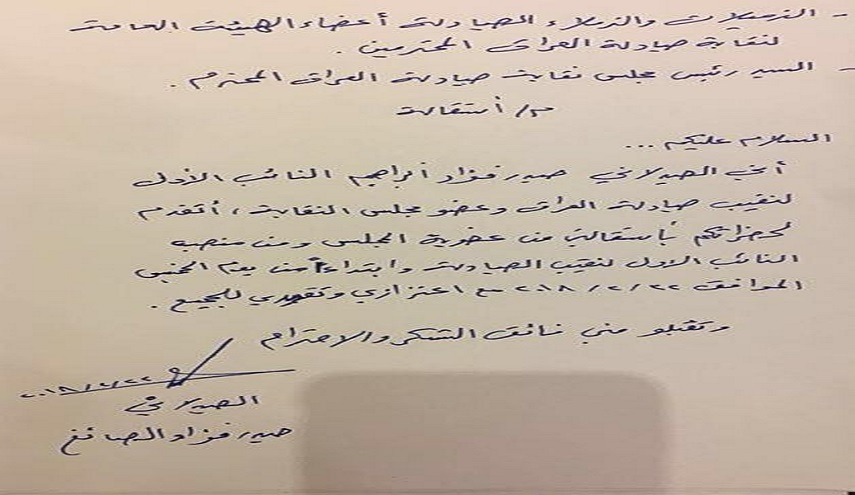 - الزميلات والزملاء الصيادلة أعضاء الهيئة العامة
لنقابة صيادلة العراق المحترمين .
- السيد رئيس مجلس نقابة صيادلة العراق المحترم .
م/ أستقالة
السلام عليكم ...
أني الصيدلاني حيدر فؤاد أبراهيم النائب الأول
لنقيب صيادلة العراق وعضو مجلس النقابة ، أتقدم
لحضراتكم بأستقالتي من عضوية المجلس ومن منصب
النائب الاول لنقيب الصيادلة وابتداءاً من يوم الخميس
الموافق ٢٠١٨/٢/٢٢ مع اعتزازي وتقديري للجميع .
وتقبلو مني فائق الشكر والاحترام
٢٠١٨/٢/٢٢
الصيدلاني
حيدر فؤاد الصائغ